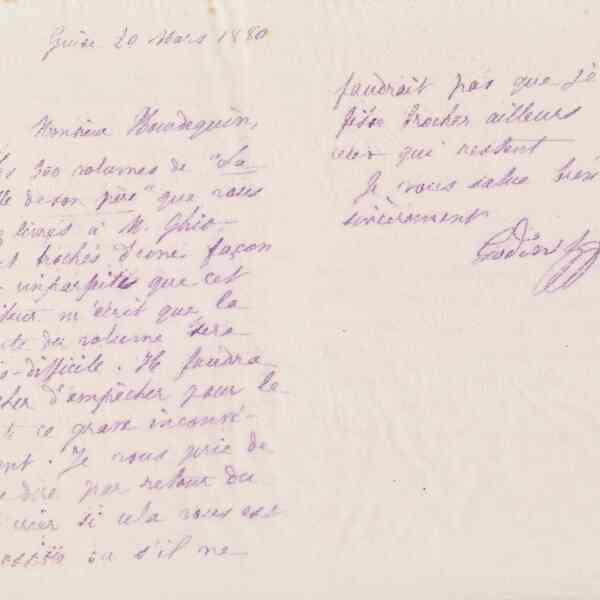 Guise 20 Mars 1880
Monsieur Hourdequin,
300 volumes de "La
de son père" que vous
livrés à M. Ghio
brochés d'une façon
imparfaite que cet
m'écrit que la
du volume sera
difficile. Il faudra
d'empêcher pour le
ce grave inconvé-
Je vous prie de
dire par retour du
si cela vous est
ou s'il ne
faudrait pas que je
fisse brocher ailleurs
ceux qui restent
Je vous salue bien
sincèrement
Godin